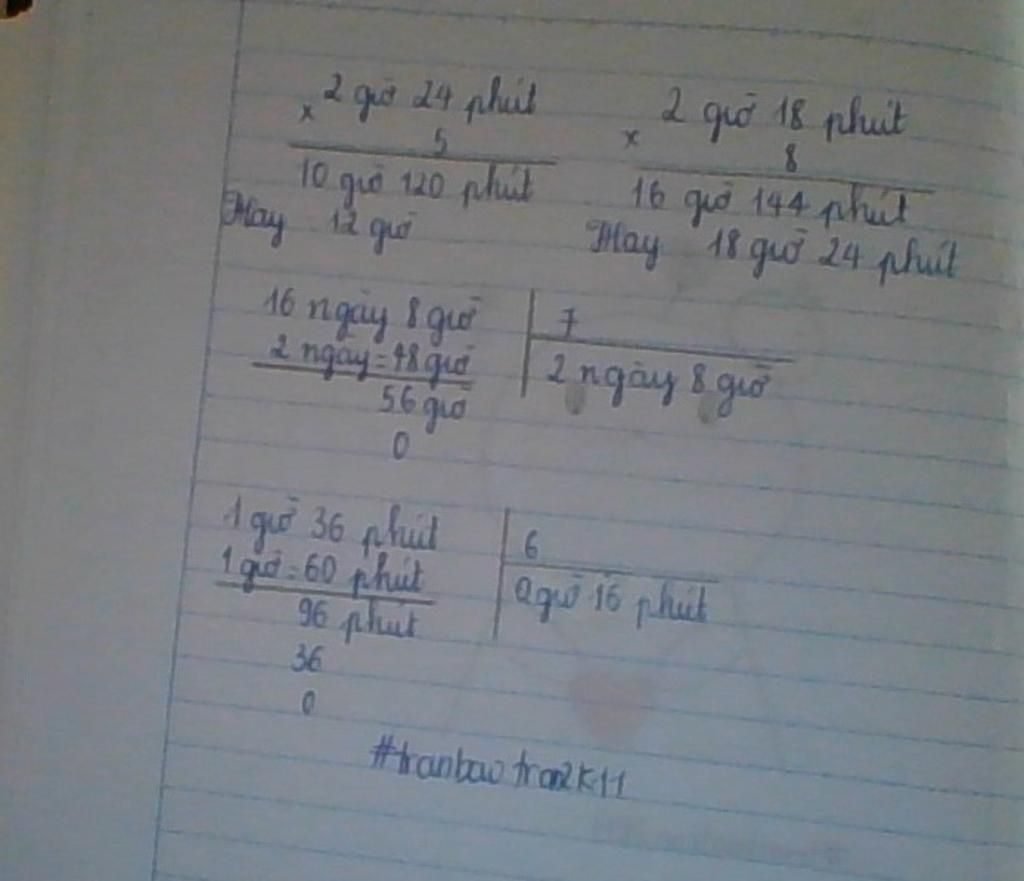 2 giờ 24 phút
×
5
10 giờ 120 phút
Hay 12 giờ
2 giờ 18 phút
×
8
16 giờ 144 phút
Hay 18 giờ 24 phút
16 ngày 8 giờ
7
2 ngày = 48 giờ
2 ngày 8 giờ
56 giờ
0
1 giờ 36 phút
6
1 giờ = 60 phút
0 giờ 16 phút
96 phút
36
0
#tranbaotran2k11